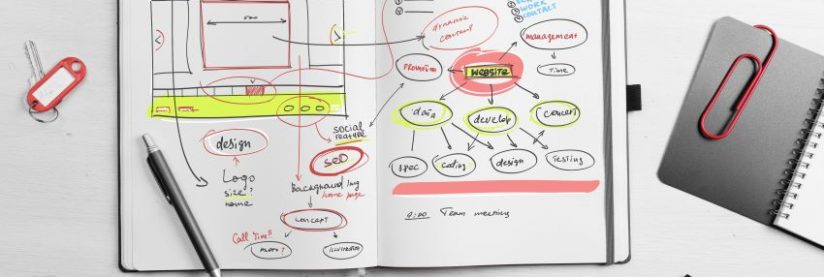 design
Logo
size?
home
social
feature
SEO
Background img
home page
concept
Call Tim!!
photo?
illustration
dynamic
content
WORK
CONTACT
management
Time
promotion
WEBSITE
data
develop
concept
spec
coding
design
testing
9:00 Team meeting